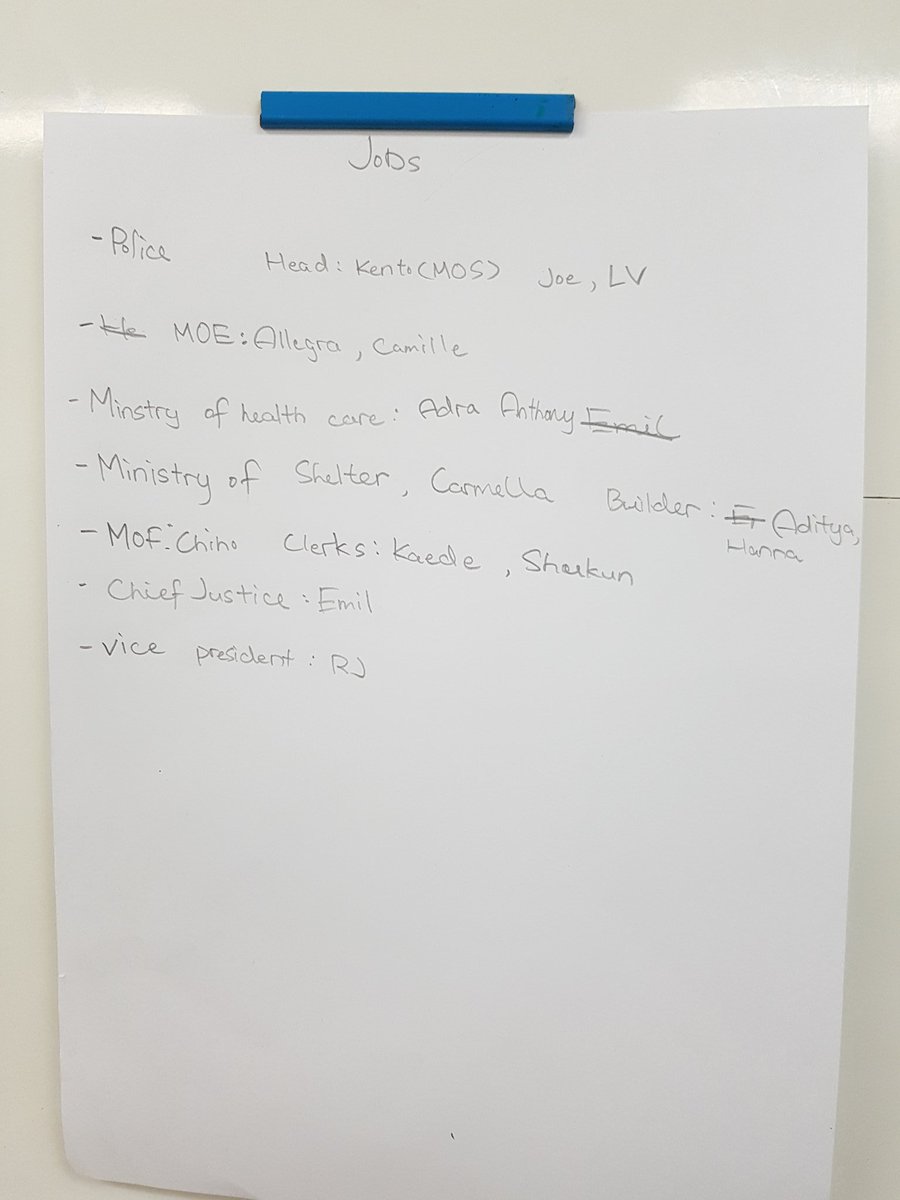 Jobs
- Police Head: Kento (MOS) Joe, LV
- He MOE: Allegra, Camille
- Minstry of health care: Adra Anthony Emil
- Ministry of Shelter, Carmella Builder: E Aditya,
Hanna
- MOF: Chino Clerks: Kaede, Sharkun
- Chief Justice: Emil
- vice president: RJ